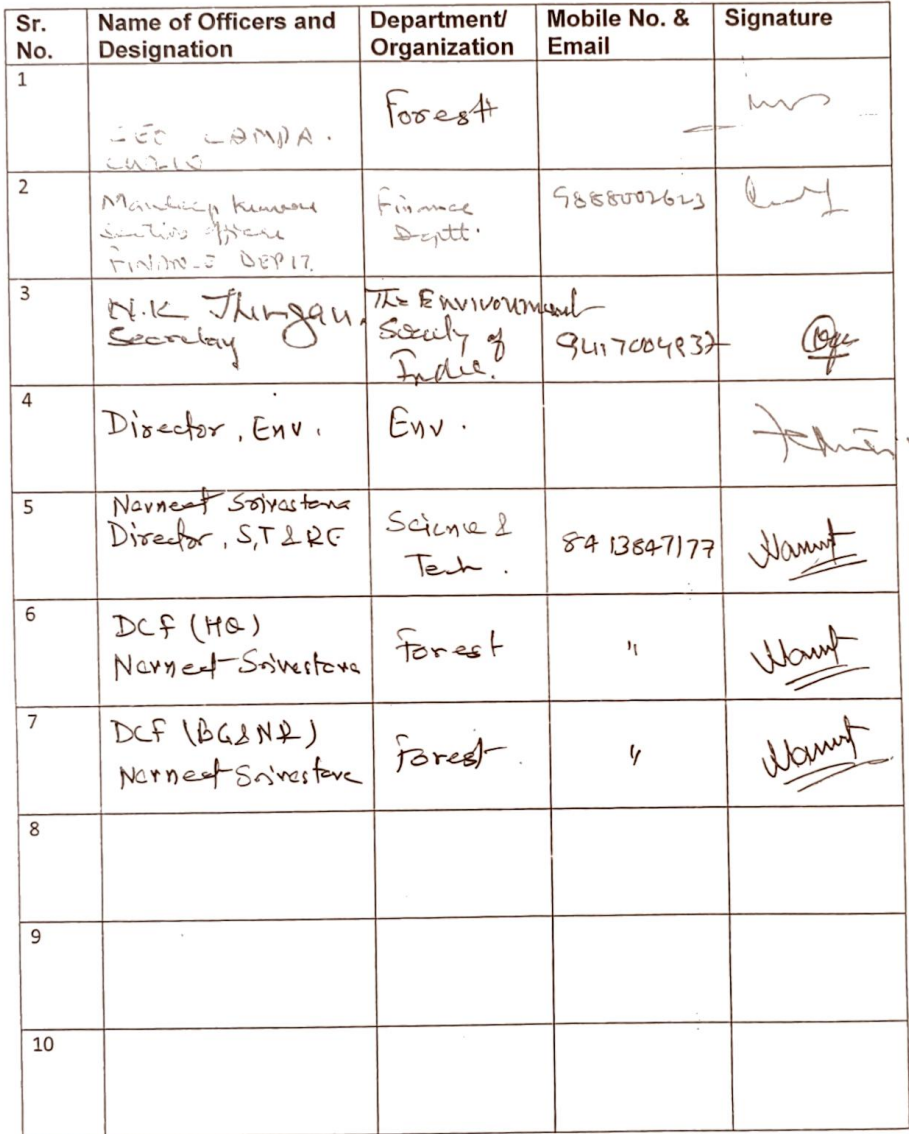 Sr. No. Name of Officers and Designation Department/ Organization Mobile No. & Email Signature
1
Forest
CEO CAMPA.
2
Mandeep Kumar
Section Officer
FINANCE DEPTT.
Finance
Deptt.
9888002623
3
N.K Jhingan,
Secretary
The Environment
Society of
India.
9417004937
4
Director, Env.
Env.
5
Navneet Srivastava
Director, S,T & RE
Science &
Tech.
8413847177
6
DCF (HQ)
Navneet Srivastava
Forest
"
7
DCF (BG&NR)
Navneet Srivastava
Forest
"
8
9
10